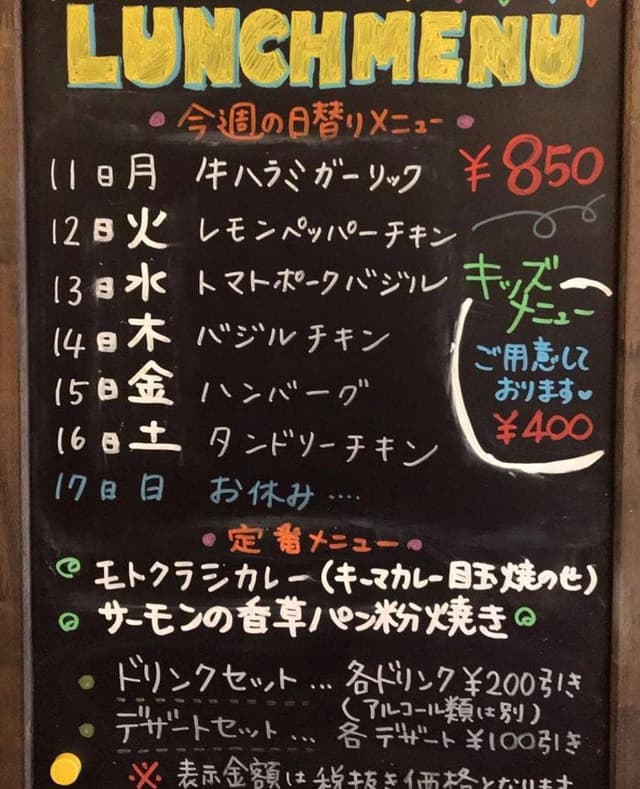 LUNCH MENU
今週の日替りメニュー
11日 月 牛ハラミガーリック
¥850
12日 火 レモンペッパーチキン
13日 水 トマトポークバジル
14日 木 バジルチキン
15日 金 ハンバーグ
16日 土 タンドリーチキン
17日 日 お休み....
キッズ
メニュー
ご用意して
おります♥
¥400
定番メニュー
モトクラシカレー(キーマカレー目玉焼のせ)
サーモンの香草パン粉焼き
ドリンクセット... 各ドリンク¥200引き
(アルコール類は別)
デザートセット... 各デザート¥100引き
※ 表示金額は税抜き価格となります